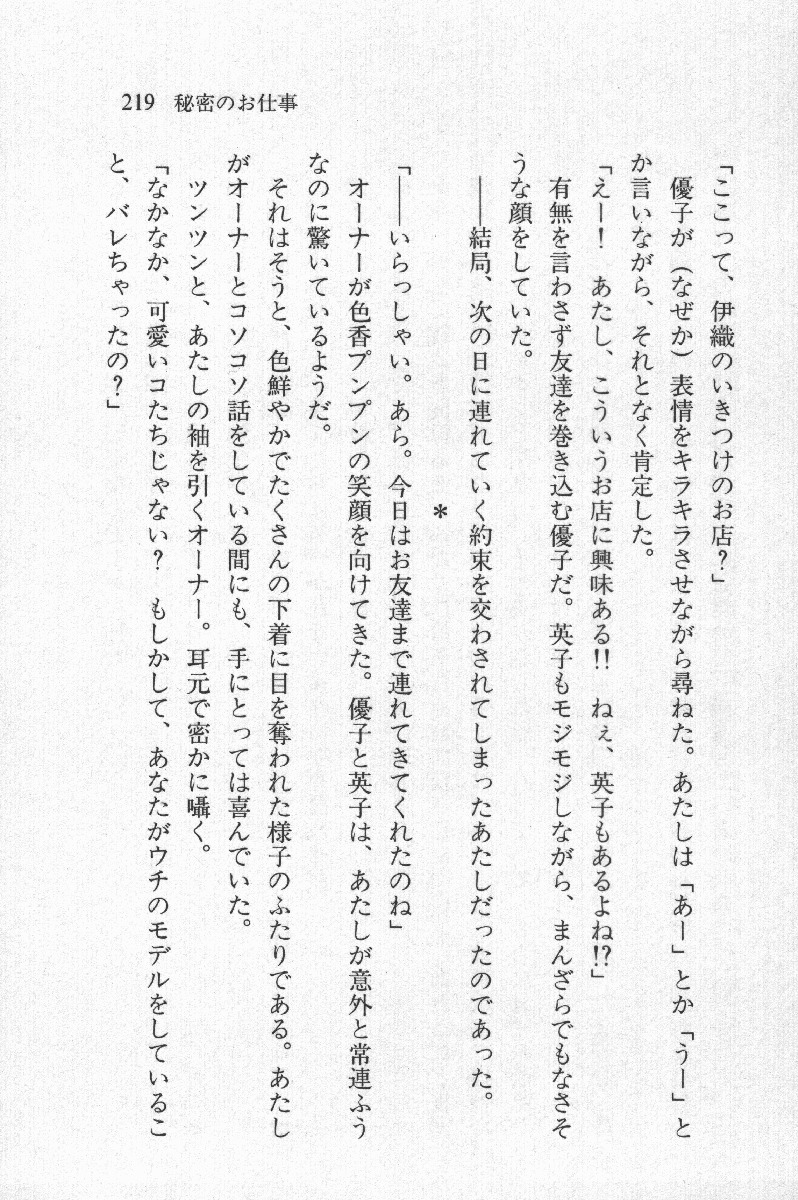 219 秘密のお仕事
「ここって、伊織のいきつけのお店？」
　優子が（なぜか）表情をキラキラさせながら尋ねた。あたしは「あー」とか「うー」と
か言いながら、それとなく肯定した。
「えー！　あたし、こういうお店に興味ある!!　ねぇ、英子もあるよね!?」
　有無を言わさず友達を巻き込む優子だ。英子もモジモジしながら、まんざらでもなさそ
うな顔をしていた。
　――結局、次の日に連れていく約束を交わされてしまったあたしだったのであった。
＊
「――いらっしゃい。あら。今日はお友達まで連れてきてくれたのね」
　オーナーが色香プンプンの笑顔を向けてきた。優子と英子は、あたしが意外と常連ふう
なのに驚いているようだ。
　それはそうと、色鮮やかでたくさんの下着に目を奪われた様子のふたりである。あたし
がオーナーとコソコソ話をしている間にも、手にとっては喜んでいた。
　ツンツンと、あたしの袖を引くオーナー。耳元で密かに囁く。
「なかなか、可愛いコたちじゃない？　もしかして、あなたがウチのモデルをしているこ
と、バレちゃったの？」